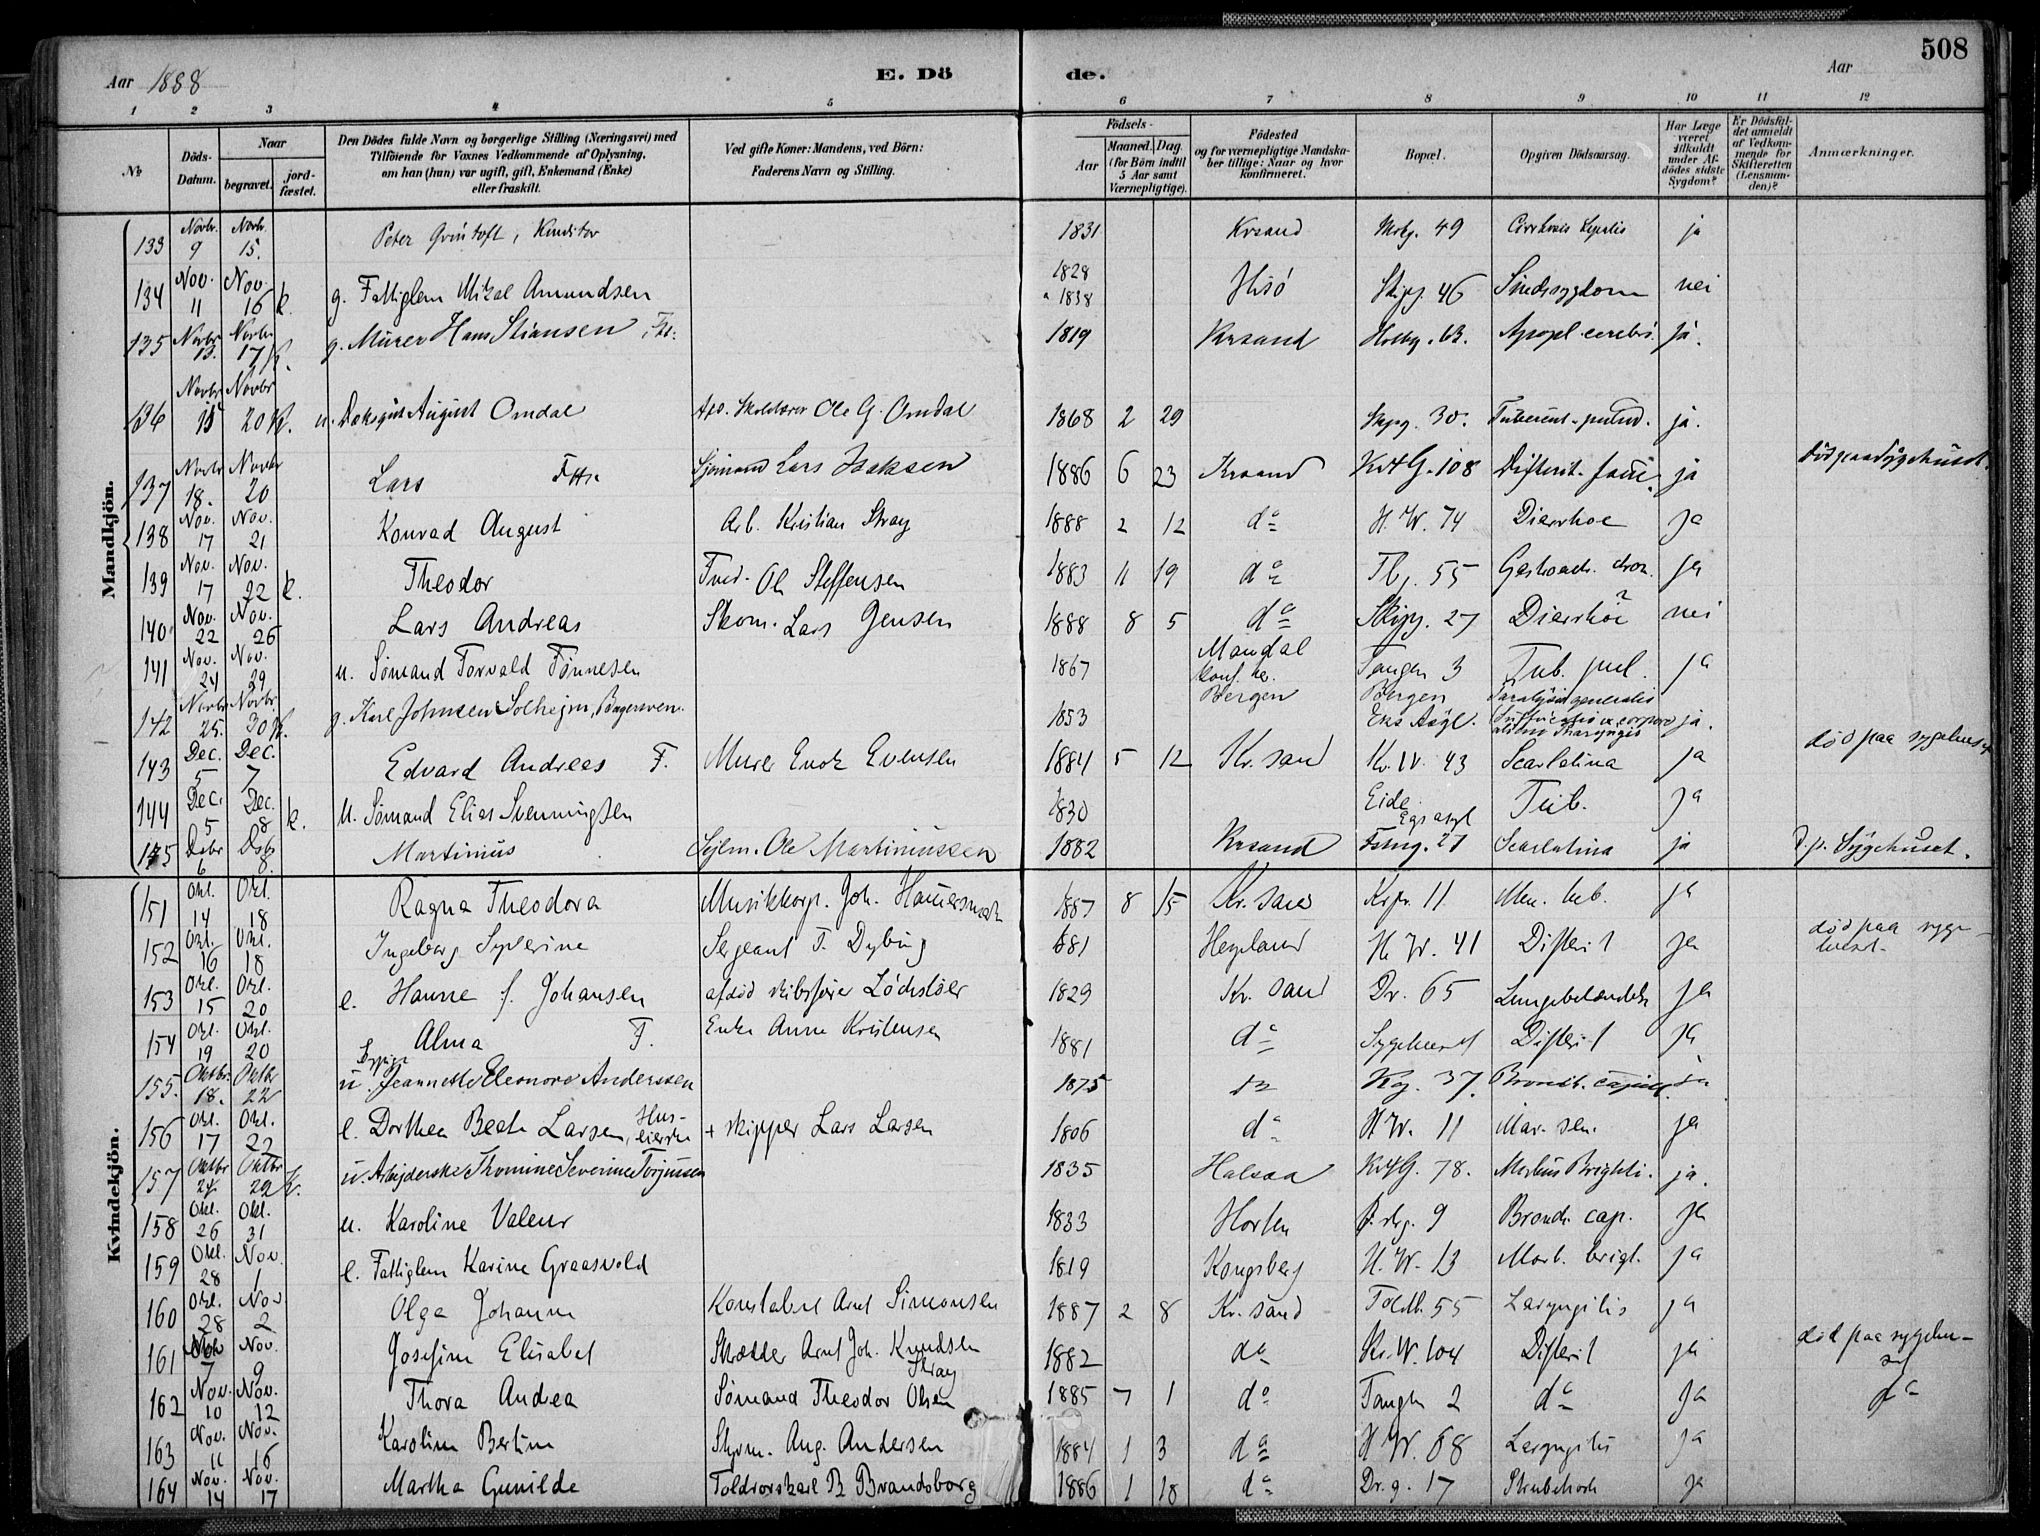 508
Aar 1888 E. Dö de. Aar
1 2 3 4 5 6 7 8 9 10 11 12
№ Döds-Datum. Naar begravet. jord-fæstet. Den Dödes fulde Navn og borgerlige Stilling (Næringsvei) med Tilföiende for Voxnes Vedkommende af Oplysning, om han (hun) var ugift, gift, Enkemand (Enke) eller fraskilt. Ved gifte Koner: Mandens, ved Börn: Faderens Navn og Stilling. Födsels- Aar Maaned. Dag. (for Börn indtil 5 Aar samt Værnepligtige). Födested og for værnepligtige Mandska-ber tillige: Naar og hvor konfirmeret. Bopæl. Opgiven Dödsaarsag. Har Læge været tilkaldt under Af-dödes sidste Sygdom? Er Dödsfal-det anmeldt af Vedkom-mende for Skifteretten (Lensman-den)? Anmærkninger.
Mandkjön.
133 Novbr. 9 Novb. 15. Peter Grüstoft, Konditor 1831 Krsand 49 ja
134 Nov. 11 Nov 16 k. g. Fattiglem Mikal Amundsen 1828 1838 Hisö Skipp. 46 Sindssygdom nei
135 Novbr 13. Novbr 17 k. g. Murer Hans Stiansen 1819 Krsand Holbg. 63. Apopl. cerebri. ja.
136 Novbr Novbr 20 k. u. August Omdal Ole G. Omdal 1868 2 29 Skpg. 30. Tubercul. pulm. ja.
137 Novbr 18. Novbr 20 Lars Sjømand Lars Isaksen 1886 6 23 Krsand KvtG. 108 Difterit. fauc. ja død paa Sygehuset.
138 Nov. 17 Nov. 21 Konrad August Arb. Kristian Stray 1888 2 12 do H. W. 74 Diarrhoe ja
139 Nov. 17 Nov. 22 k. Theodor Ol Steffensen 1883 11 19 do 55 ja
140 Nov. 22 Nov. 26 Lars Andreas Skom. Lars Jensen 1888 8 5 do Skipp. 27 Diarrhoe ? nei
141 Nov. 24 Nov. 29 u. Sømand Torvald Tønnesen 1867 Mandal Konf. her. Tangen 3 Tub. pul. ja
142 Novbr 25. Novbr 30 k. g. Karl Johnsen Solheim, Bagersvend 1853 Bergen Bergen Eks Asyl. Paralysis generalis Suffocatio e corpore alieno Pharyngis ja.
143 Dec. 5 Dec. 7 Edvard Andreas F. Murer Enok Evensen 1884 5 12 Kr. sand Kr. W. 43 Scarlatina ja død paa sygehuset
144 Dec. 5 Dec. 8 k. U. Sømand Elias Svenningsen 1830 Eide Egs asyl Tub. ja
145 Dcbr 6 Dcbr 8. Martinius Sejlm. Ole Martiniussen 1882 Krsand 27 Scarlatina ja D. p. Sygehuset.
Kvindekjön.
151 Okt. 14 Okt. 18 Ragna Theodora Musikkorp. Joh. 1887 8 15 Kr. sand 11 Men. tub. ja
152 Okt. 16 Okt. 18 Ingeborg Syverine Sergeant T. Dybing 1881 Hegeland H. W. 41 Difterit ja død paa syge-huset.
153 Okt. 15 Okt. 20 e. Hanne f. Johansen afdød skibsfører Lödsløer 1829 Kr. sand Dr. 65 Lungebetændelse ja
154 Okt. 19 Okt. 20 Alma F. Enke Anne Kristensen 1881 do Sygehuset Difterit ja
155. Oktbr. 18. Oktbr 22 u. Sypige Jeannette Eleonore Anderssen 1875 do Kg. 37. Bronch. capill. ja
156 Okt. 17 Okt. 22 e. Dorthea Beate Larsen, Hus-eierske + skipper Lars Larsen 1806 do H W. 11 Mar. sen. ja
157 Oktbr 24 Oktbr 29 k. u. Arbejderske Thomine Severine Torjussen 1835 Halsaa KvtG. 78. Morbus Brightii. ja.
158 Okt. 26 Okt. 31 u. Karoline Valeur 1833 Horten 9 Bronch. cap. ja
159 Okt. 28 Nov. 1 e. Fattiglem Karine Graasvold 1819 Kongsberg H. W. 13 Morb. brigt. ja
160 Okt. 28 Nov 2 Olga Johanne Konstabel Arnt Simonsen 1887 2 8 Kr. sand Toldb. 55 Laryngitis ja
161 Nov 7 Nov. 9 Josefine Elisabet Skrædder Arnt Joh. Knudsen Stray 1882 do Kr. W. 104 Difterit ja død paa sygehu-set
162 Nov. 10 Nov. 12 Thora Andrea Sømand Theodor Olsen 1885 7 1 do Tangen 2 do ja do
163 Nov. 11 Nov. 16 Karoline Bertine Styrm. Aug. Andersen 1884 1 3 do H W. 68 Laryngitis ja
164 Nov. 14 Nov. 17 Martha Gunilde Toldrorskarl B Brandsborg 1886 1 18 do Dr. g. 17 Strubehoste ja